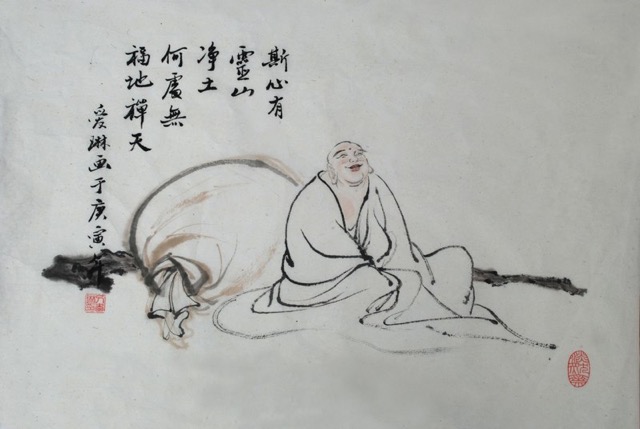 斯心有
靈山
净土
何處無
福地禪天
爱琳画于庚寅年